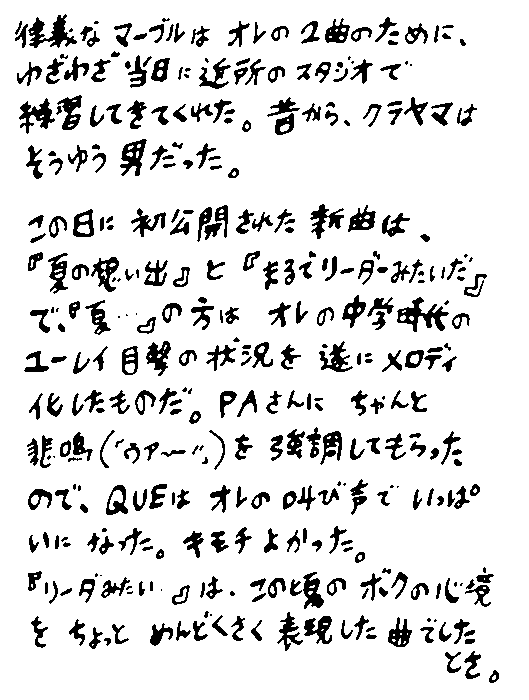 律義な マーブルは オレの2曲のために、
わざわざ 当日に近所のスタジオで
練習してきてくれた。昔から、クラヤマは
そうゆう 男だった。
この日に 初公開された 新曲は、
『夏の想い出』と『まるでリーダーみたいだ』
で、『夏…』の方は オレの中学時代の
ユーレイ目撃の状況を 遂にメロディ
化したものだ。PAさんに ちゃんと
悲鳴(“ウァ〜”)を 強調してもらった
ので、QUEは オレの叫び声で いっぱ
いに なった。キモチよかった。
『リーダみたい…』は、この頃の ボクの心境
を ちょっと めんどくさく 表現した 曲でした
とさ。